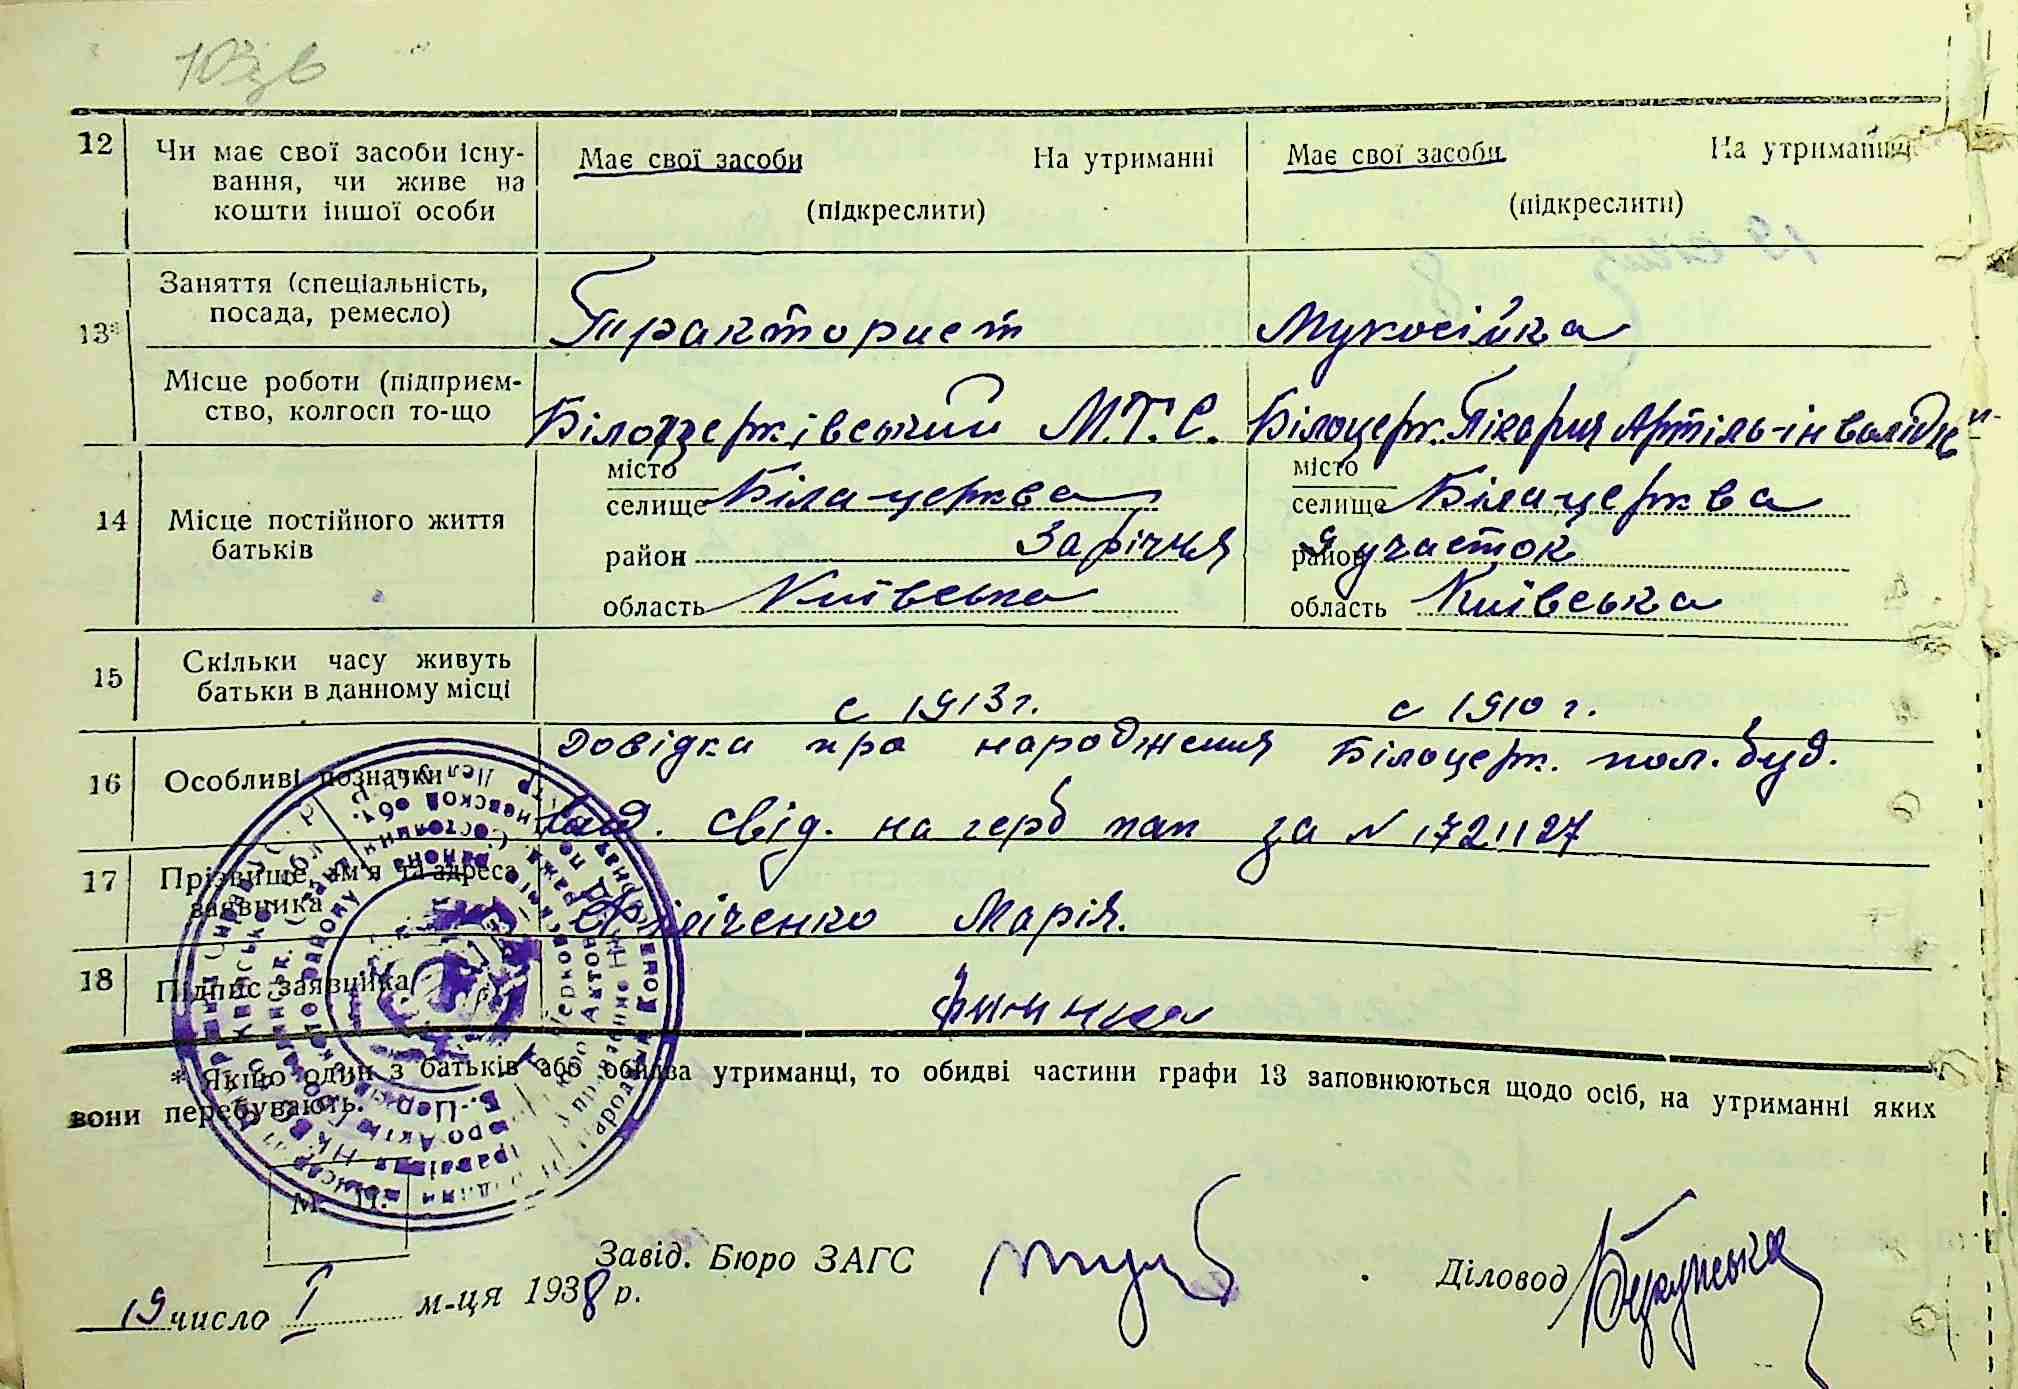 103в
12 Чи має свої засоби існування, чи живе на кошти іншої особи
Має свої засоби На утриманні (підкреслити)
Має свої засоби На утриманні (підкреслити)
13* Заняття (спеціальність, посада, ремесло)
Тракторист
Мукосійка
Місце роботи (підприємство, колгосп то-що
Білоцерківський М.Т.С.
Білоцерк. Пікарня Артіль-інвалідів
14 Місце постійного життя батьків
місто
селище Біла церква
район Зарічня
область Київська
місто
селище Біла церква
район участок
область Київська
15 Скільки часу живуть батьки в данному місці
с 1913 г.
с 1910 г.
16 Особливі позначки
Довідка про народження Білоцерк. пол. буд.
Вид. свід. на герб пап за № 1721127
17 Прізвище, ім'я та адреса заявника
Марія.
18 Підпис заявника
* Якщо один з батьків або обидва утриманці, то обидві частини графи 13 заповнюються щодо осіб, на утриманні яких
вони перебувають.
М. П.
Завід. Бюро ЗАГС
Діловод
19 число I м-ця 1938 р.